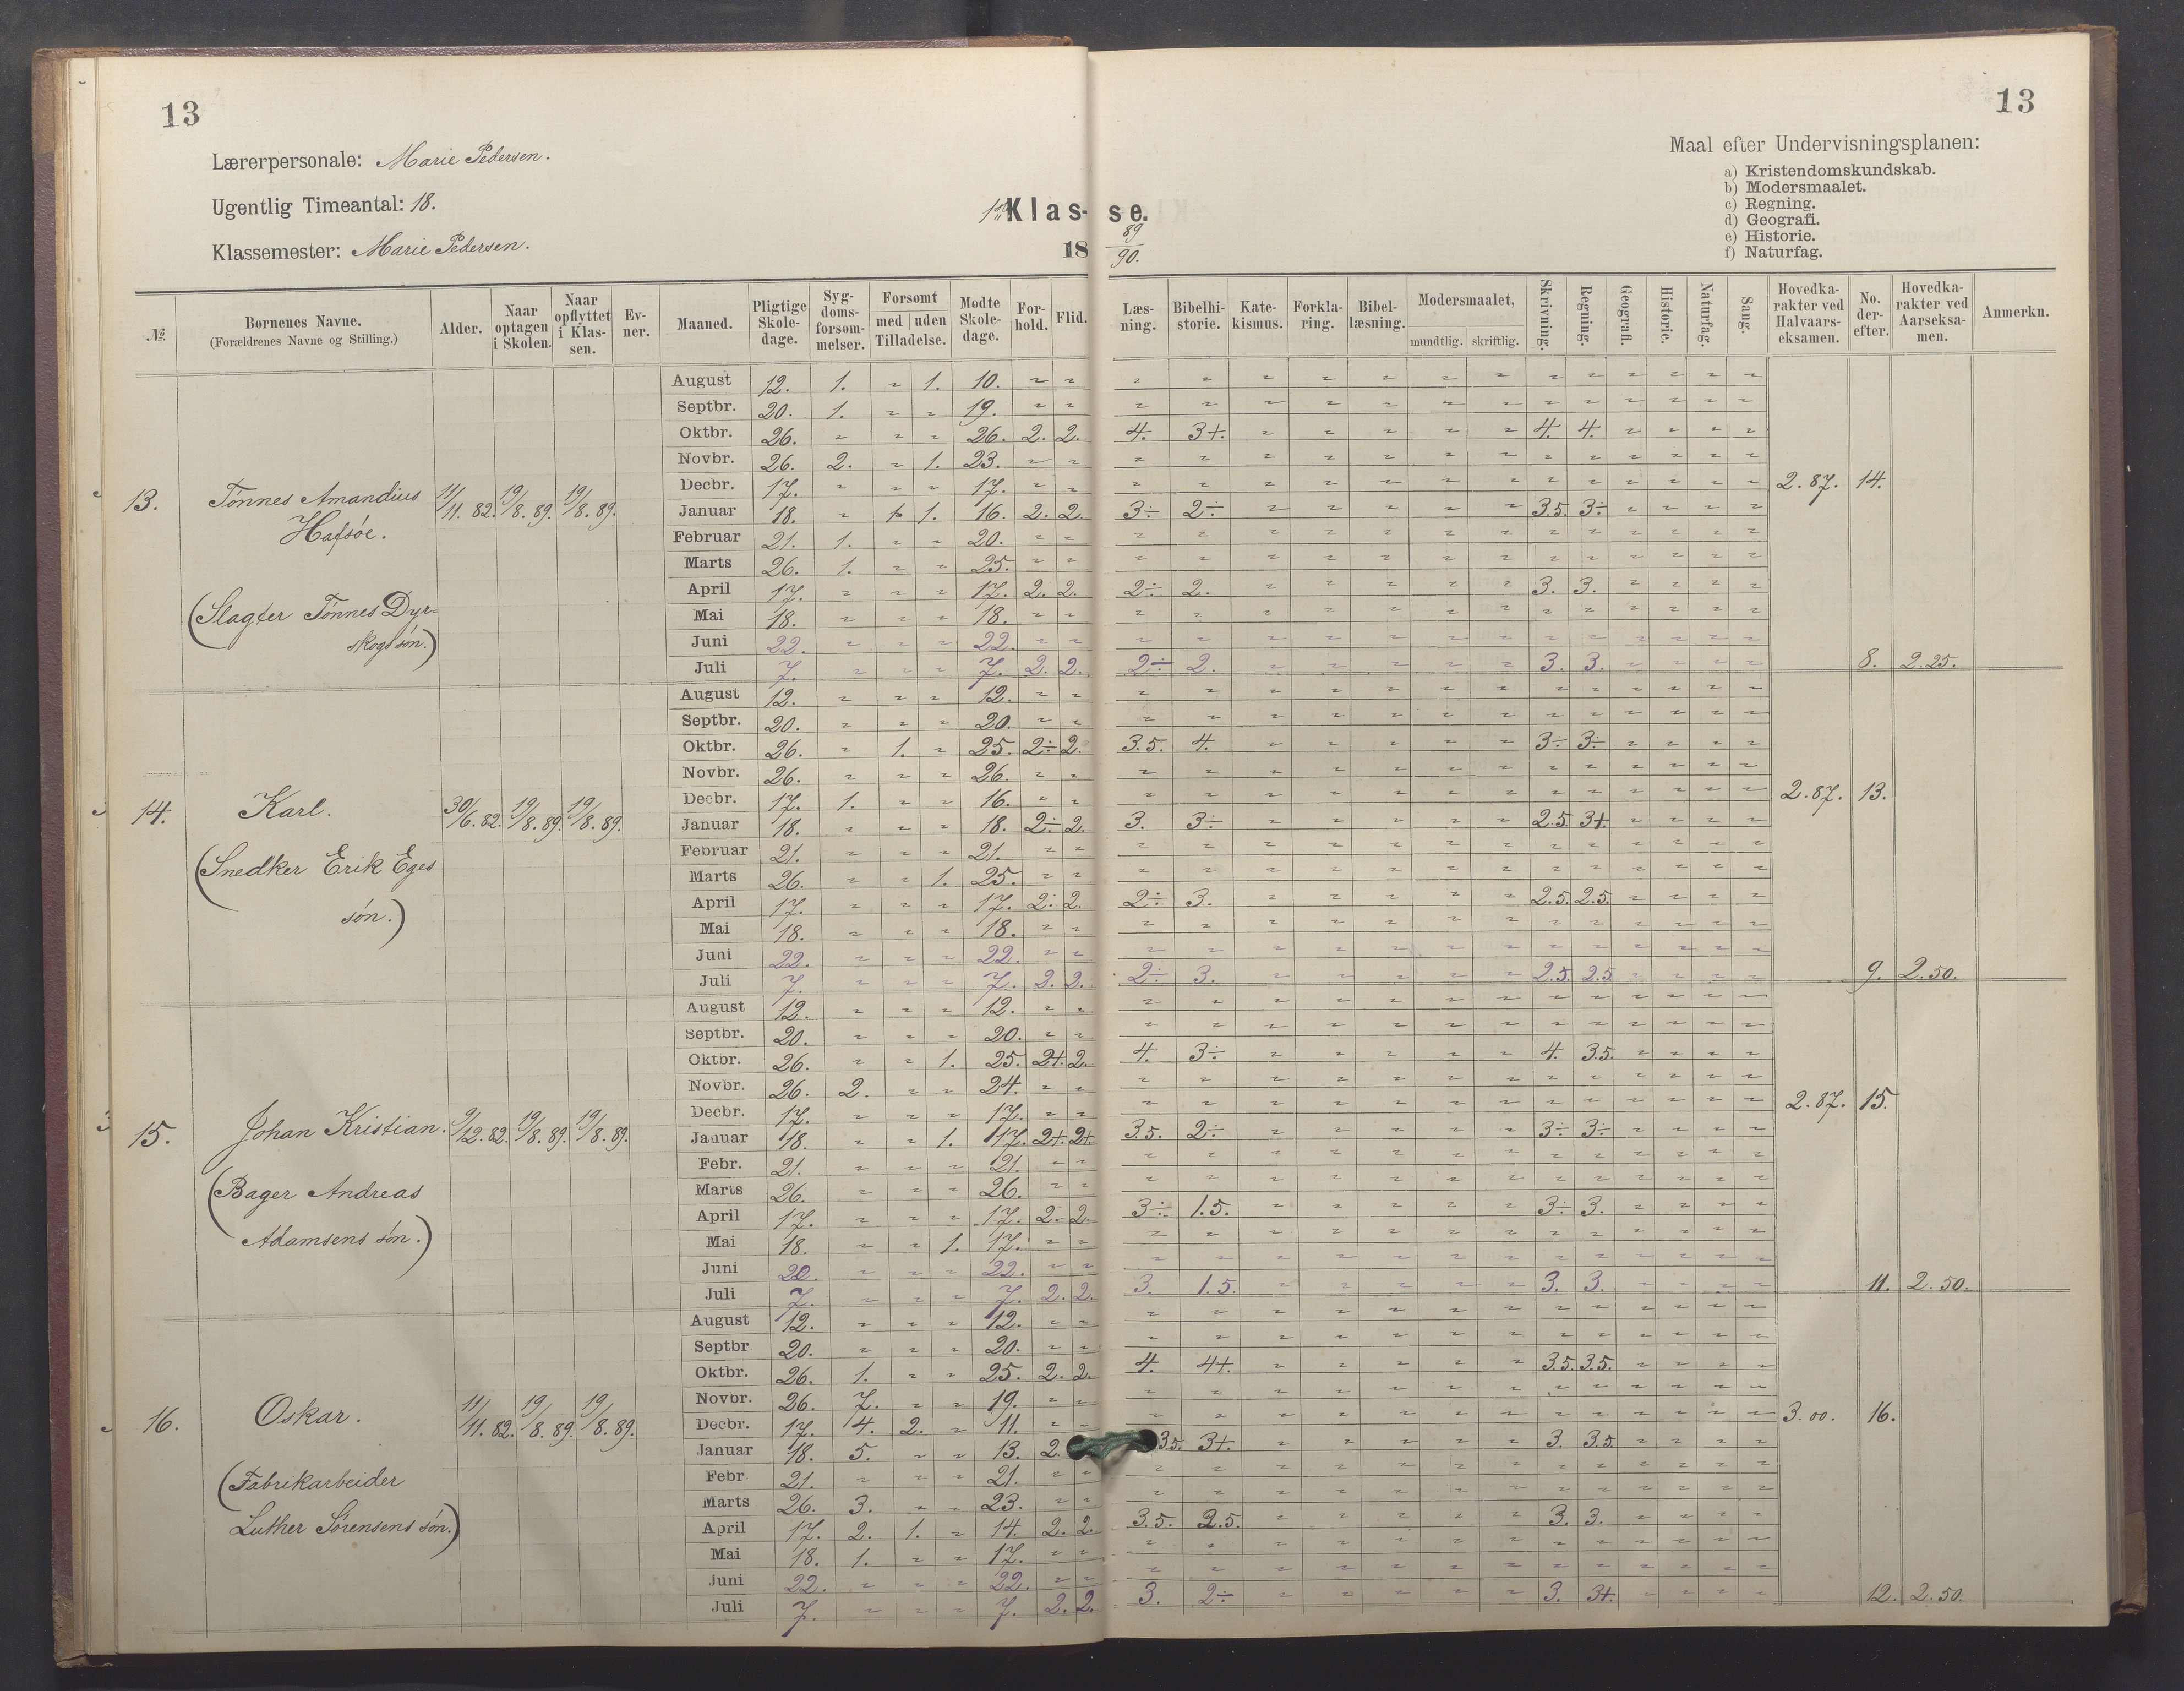 13
13
Lærerpersonale: Marie Pedersen.
Ugentlig Timeantal: 18.
Klassemester: Marie Pedersen.
1ste Klasse.
18 89/90.
Maal efter Undervisningsplanen:
a) Kristendomskundskab.
b) Modersmaalet.
c) Regning.
d) Geografi.
e) Historie.
f) Naturfag.
№ Børnenes Navne. (Forældrenes Navne og Stilling.) Alder. Naar optagen i Skolen. Naar opflyttet i Klassen. Evner. Maaned. Pligtige Skoledage. Sygdomsforsømmelser. Forsømt med uden Tilladelse. Mødte Skoledage. Forhold. Flid. Læsning. Bibelhistorie. Katekismus. Forklaring. Bibellæsning. Modersmaalet, mundtlig. skriftlig. Skrivning. Regning. Geografi. Historie. Naturfag. Sang. Hovedkarakter ved Halvaarseksamen. No. derefter. Hovedkarakter ved Aarseksamen. Anmerkn.
13. Tønnes Amandius Hafsøe. 11/11. 82. 19/8. 89. 19/8. 89.
(Slagter Tønnes Dyrskogs søn.)
August 12. 1. " 1. 10. " " " " " " " " " " " " " " "
Septbr. 20. 1. " " 19. " " " " " " " " " " " " " " "
Oktbr. 26. " " " 26. 2. 2. 4. 3+. " " " " " 4. 4. " " " "
Novbr. 26. 2. " 1. 23. " " " " " " " " " " " " " " "
Decbr. 17. " " " 17. " " " " " " " " " " " " " " " 2.87. 14.
Januar 18. " 1. 1. 16. 2. 2. 3÷ 2÷ " " " " " 3.5. 3÷ " " " "
Februar 21. 1. " " 20. " " " " " " " " " " " " " " "
Marts 26. 1. " " 25. " " " " " " " " " " " " " " "
April 17. " " " 17. 2. 2. 2÷ 2. " " " " " 3. 3. " " " "
Mai 18. " " " 18. " " " " " " " " " " " " " " "
Juni 22. " " " 22. " " " " " " " " " " " " " " "
Juli 7. " " " 7. 2. 2. 2÷ 2. " " " " " 3. 3. " " " " 8. 2.25.
14. Karl. 30/6. 82. 19/8. 89. 19/8. 89.
(Snedker Erik Eges søn.)
August 12. " " " 12. " " " " " " " " " " " " " " "
Septbr. 20. " " " 20. " " " " " " " " " " " " " " "
Oktbr. 26. " 1. " 25. 2÷ 2. 3.5. 4. " " " " " 3÷ 3÷ " " " "
Novbr. 26. " " " 26. " " " " " " " " " " " " " " "
Decbr. 17. 1. " " 16. " " " " " " " " " " " " " " " 2.87. 13.
Januar 18. " " " 18. 2÷ 2. 3. 3÷ " " " " " 2.5 3+. " " " "
Februar 21. " " " 21. " " " " " " " " " " " " " " "
Marts 26. " " 1. 25. " " " " " " " " " " " " " " "
April 17. " " " 17. 2÷ 2. 2÷ 3. " " " " " 2.5. 2.5. " " " "
Mai 18. " " " 18. " " " " " " " " " " " " " " "
Juni 22. " " " 22. " " " " " " " " " " " " " " "
Juli 7. " " " 7. 2. 2. 2÷ 3. " " " " " 2.5. 2.5 " " " " 9. 2.50.
15. Johan Kristian. 9/12. 82. 19/8. 89. 19/8. 89.
(Bager Andreas Adamsens søn.)
August 12. " " " 12. " " " " " " " " " " " " " " "
Septbr. 20. " " " 20. " " " " " " " " " " " " " " "
Oktbr. 26. " " 1. 25. 2+. 2. 4. 3÷ " " " " " 4. 3.5. " " " "
Novbr. 26. 2. " " 24. " " " " " " " " " " " " " " "
Decbr. 17. " " " 17. " " " " " " " " " " " " " " " 2.87. 15.
Januar 18. " " 1. 17. 2+. 2+. 3.5. 2÷ " " " " " 3÷ 3÷ " " " "
Febr. 21. " " " 21. " " " " " " " " " " " " " " "
Marts 26. " " " 26. " " " " " " " " " " " " " " "
April 17. " " " 17. 2. 2. 3÷ 1.5. " " " " " 3÷ 3. " " " "
Mai 18. " " 1. 17. " " " " " " " " " " " " " " "
Juni " " " 22. " " " " " " " " " " " " " " "
Juli 7. " " " 7. 2. 2. 3. 1.5. " " " " " 3. 3. " " " " 11. 2.50.
16. Oskar. 11/11. 82. 19/8. 89. 19/8. 89.
(Fabrikarbeider Luther Sørensens søn.)
August 12. " " " 12. " " " " " " " " " " " " " " "
Septbr 20. " " " 20. " " " " " " " " " " " " " " "
Oktbr. 26. 1. " " 25. 2. 2. 4. 4+. " " " " " 3.5. 3.5. " " " "
Novbr. 26. 7. " " 19. " " " " " " " " " " " " " " "
Decbr. 17. 4. 2. " 11. " " " " " " " " " " " " " " " 3.00. 16.
Januar 18. 5. " " 13. 2. 3.5. 3+. " " " " " 3. 3.5. " " " "
Febr 21. " " " 21. " " " " " " " " " " " " " " "
Marts 26. 3. " " 23. " " " " " " " " " " " " " " "
April 17. 2. 1. " 14. 2. 2. 3.5. 2.5. " " " " " 3. 3. " " " "
Mai 18. 1. " " 17. " " " " " " " " " " " " " " "
Juni 22. " " " 22. " " " " " " " " " " " " " " "
Juli 7. " " " 7. 2. 2. 3. 2÷ " " " " " 3. 3+. " " " " 12. 2.50.